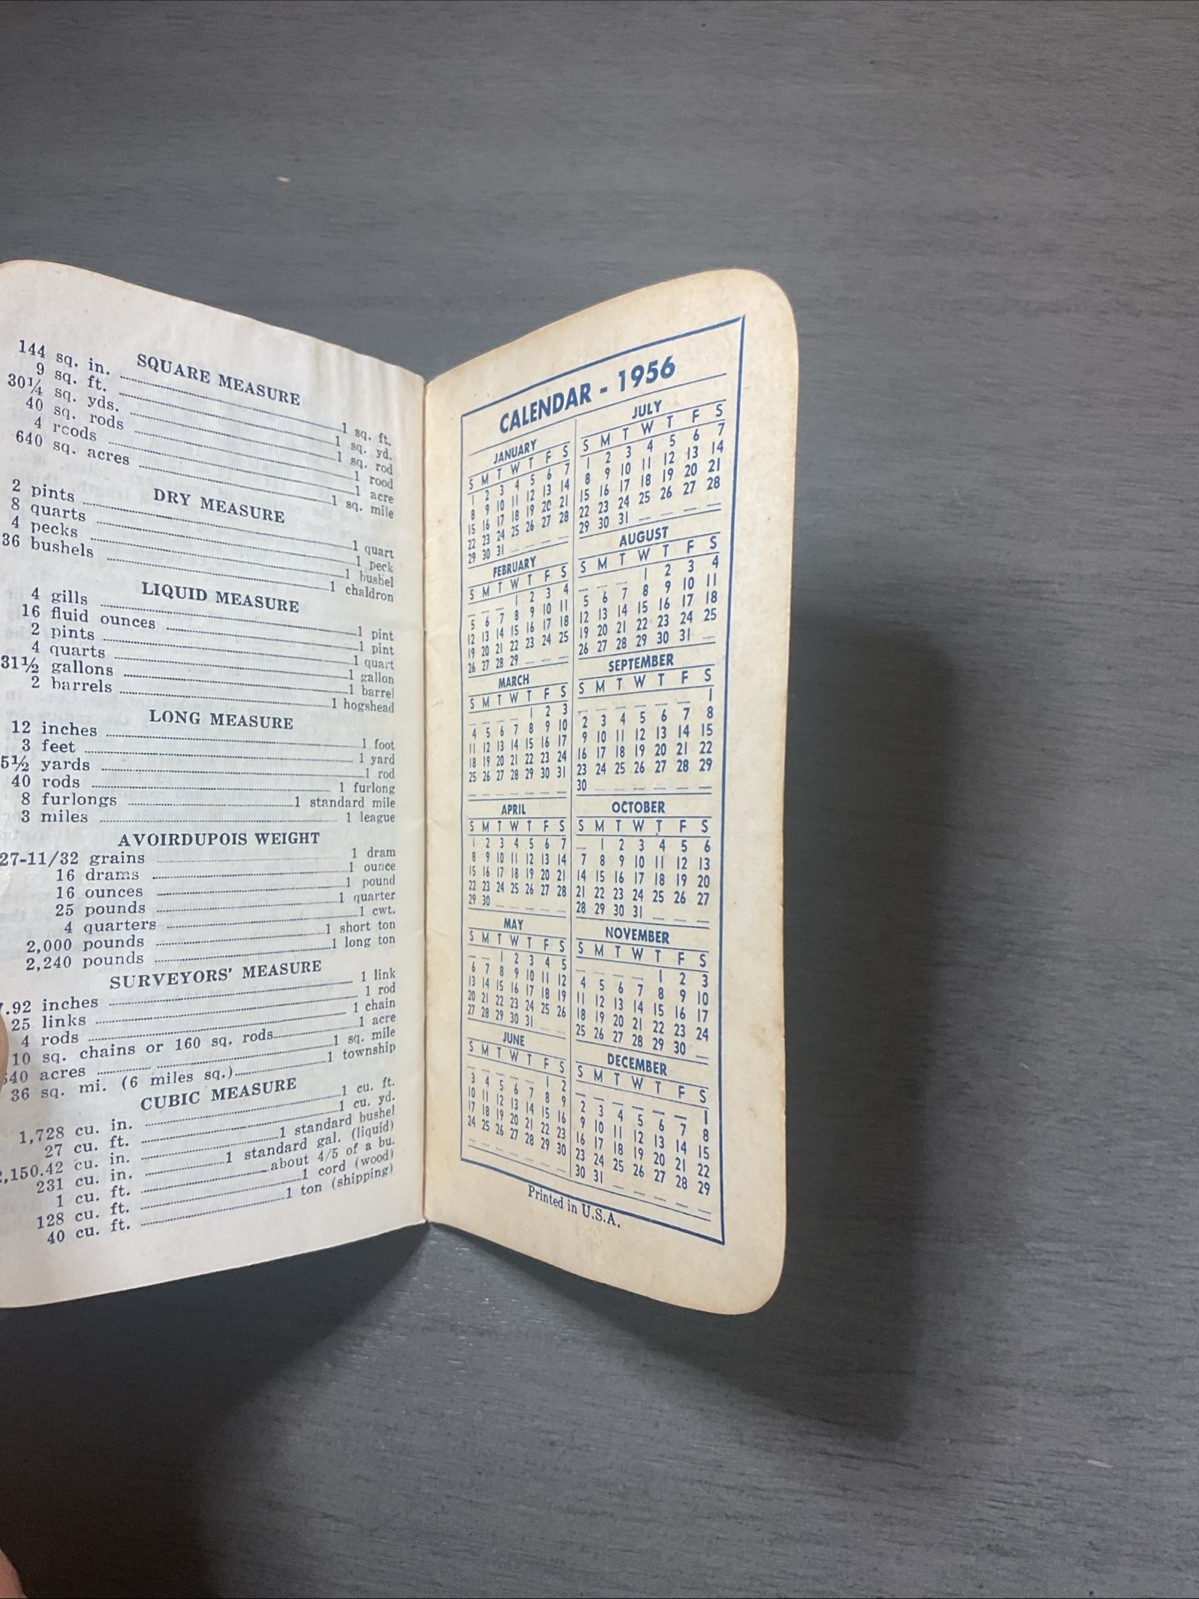 SQUARE MEASURE
144 sq. in. 1 sq. ft.
9 sq. ft. 1 sq. yd.
30¼ sq. yds. 1 sq. rod
40 sq. rods 1 rood
4 roods 1 acre
640 sq. acres 1 sq. mile
DRY MEASURE
2 pints 1 quart
8 quarts 1 peck
4 pecks 1 bushel
36 bushels 1 chaldron
LIQUID MEASURE
4 gills 1 pint
16 fluid ounces 1 pint
2 pints 1 quart
4 quarts 1 gallon
31½ gallons 1 barrel
2 barrels 1 hogshead
LONG MEASURE
12 inches 1 foot
3 feet 1 yard
5½ yards 1 rod
40 rods 1 furlong
8 furlongs 1 standard mile
3 miles 1 league
AVOIRDUPOIS WEIGHT
27-11/32 grains 1 dram
16 drams 1 ounce
16 ounces 1 pound
25 pounds 1 quarter
4 quarters 1 cwt.
2,000 pounds 1 short ton
2,240 pounds 1 long ton
SURVEYORS' MEASURE
7.92 inches 1 link
25 links 1 rod
4 rods 1 chain
10 sq. chains or 160 sq. rods 1 acre
640 acres 1 sq. mile
36 sq. mi. (6 miles sq.) 1 township
CUBIC MEASURE
1,728 cu. in. 1 cu. ft.
27 cu. ft. 1 cu. yd.
2,150.42 cu. in. 1 standard bushel
231 cu. in. 1 standard gal. (liquid)
1 cu. ft. about 4/5 of a bu.
128 cu. ft. 1 cord (wood)
40 cu. ft. 1 ton (shipping)
CALENDAR - 1956
JANUARY
S M T W T F S
1 2 3 4 5 6 7
8 9 10 11 12 13 14
15 16 17 18 19 20 21
22 23 24 25 26 27 28
29 30 31
FEBRUARY
S M T W T F S
1 2 3 4
5 6 7 8 9 10 11
12 13 14 15 16 17 18
19 20 21 22 23 24 25
26 27 28 29
MARCH
S M T W T F S
1 2 3
4 5 6 7 8 9 10
11 12 13 14 15 16 17
18 19 20 21 22 23 24
25 26 27 28 29 30 31
APRIL
S M T W T F S
1 2 3 4 5 6 7
8 9 10 11 12 13 14
15 16 17 18 19 20 21
22 23 24 25 26 27 28
29 30
MAY
S M T W T F S
1 2 3 4 5
6 7 8 9 10 11 12
13 14 15 16 17 18 19
20 21 22 23 24 25 26
27 28 29 30 31
JUNE
S M T W T F S
1 2
3 4 5 6 7 8 9
10 11 12 13 14 15 16
17 18 19 20 21 22 23
24 25 26 27 28 29 30
JULY
S M T W T F S
1 2 3 4 5 6 7
8 9 10 11 12 13 14
15 16 17 18 19 20 21
22 23 24 25 26 27 28
29 30 31
AUGUST
S M T W T F S
1 2 3 4
5 6 7 8 9 10 11
12 13 14 15 16 17 18
19 20 21 22 23 24 25
26 27 28 29 30 31
SEPTEMBER
S M T W T F S
1
2 3 4 5 6 7 8
9 10 11 12 13 14 15
16 17 18 19 20 21 22
23 24 25 26 27 28 29
30
OCTOBER
S M T W T F S
1 2 3 4 5 6
7 8 9 10 11 12 13
14 15 16 17 18 19 20
21 22 23 24 25 26 27
28 29 30 31
NOVEMBER
S M T W T F S
1 2 3
4 5 6 7 8 9 10
11 12 13 14 15 16 17
18 19 20 21 22 23 24
25 26 27 28 29 30
DECEMBER
S M T W T F S
1
2 3 4 5 6 7 8
9 10 11 12 13 14 15
16 17 18 19 20 21 22
23 24 25 26 27 28 29
30 31
Printed in U.S.A.